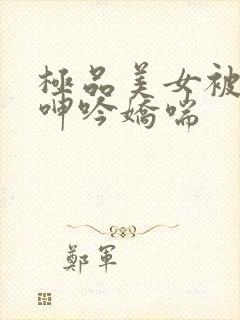 極品美女被
呻吟嬌喘
鄭軍